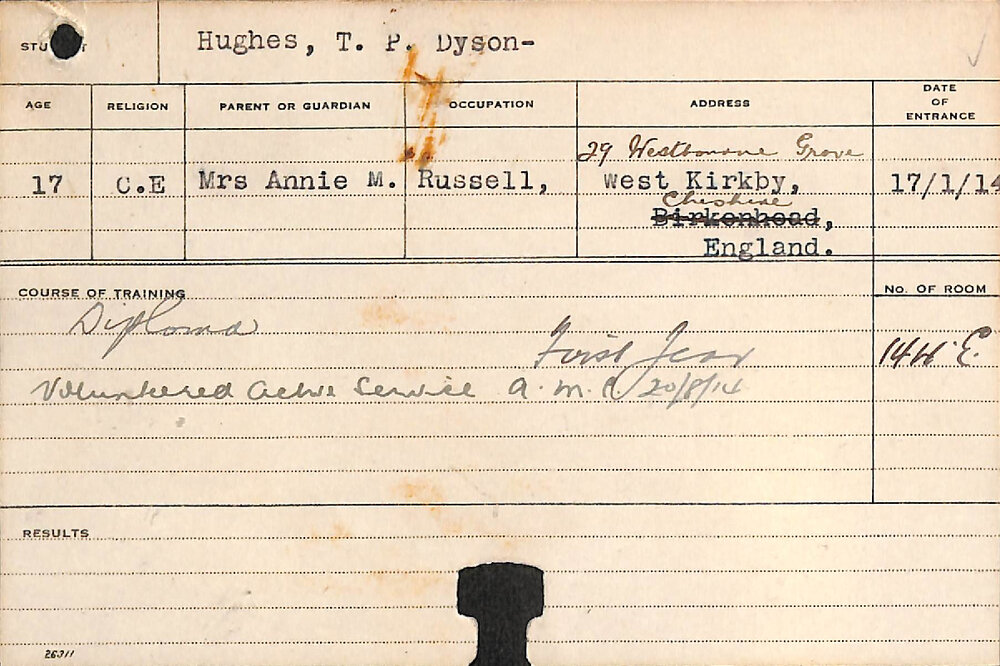 STU T Hughes, T. P. Dyson-
AGE RELIGION PARENT OR GUARDIAN OCCUPATION ADDRESS DATE OF ENTRANCE
29 Westbourne Grove
17 C.E Mrs Annie M. Russell, West Kirkby, 17/1/14
Cheshire
Birkenhead,
England.
COURSE OF TRAINING No. OF ROOM
Diploma
First Year 14 W. E.
Volunteered active Service A.M.C. 20/8/14
RESULTS
26311